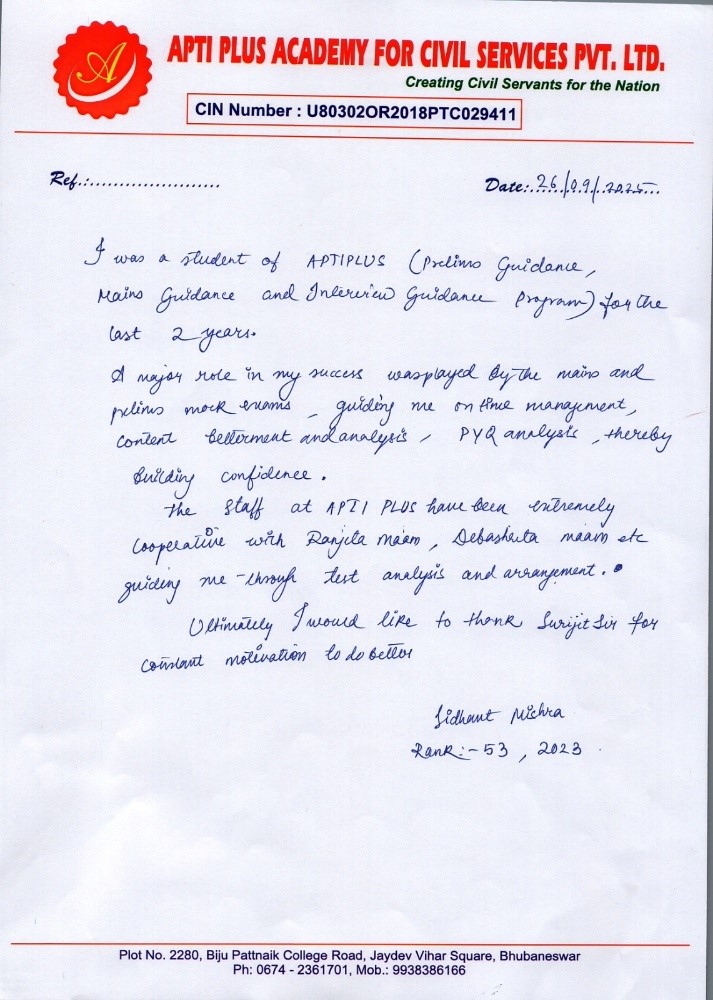 A
APTI PLUS ACADEMY FOR CIVIL SERVICES PVT. LTD.
Creating Civil Servants for the Nation
CIN Number : U80302OR2018PTC029411
Ref.:.......................
Date:.26/09/2025...
I was a student of APTIPLUS (Prelims Guidance,
Mains Guidance and Interview Guidance Program) for the
last 2 years.
A major role in my success was played by the mains and
prelims mock exams, guiding me on time management,
content betterment and analysis, PYQ analysis, thereby
building confidence.
The staff at APTI PLUS have been extremely
cooperative with Ranjita maam, maam etc
guiding me through test analysis and arrangement.
Ultimately I would like to thank Surijit Sir for
constant motivation to do better
Sidhant Mishra
Rank:- 53, 2023
Plot No. 2280, Biju Pattnaik College Road, Jaydev Vihar Square, Bhubaneswar
Ph: 0674 - 2361701, Mob.: 9938386166